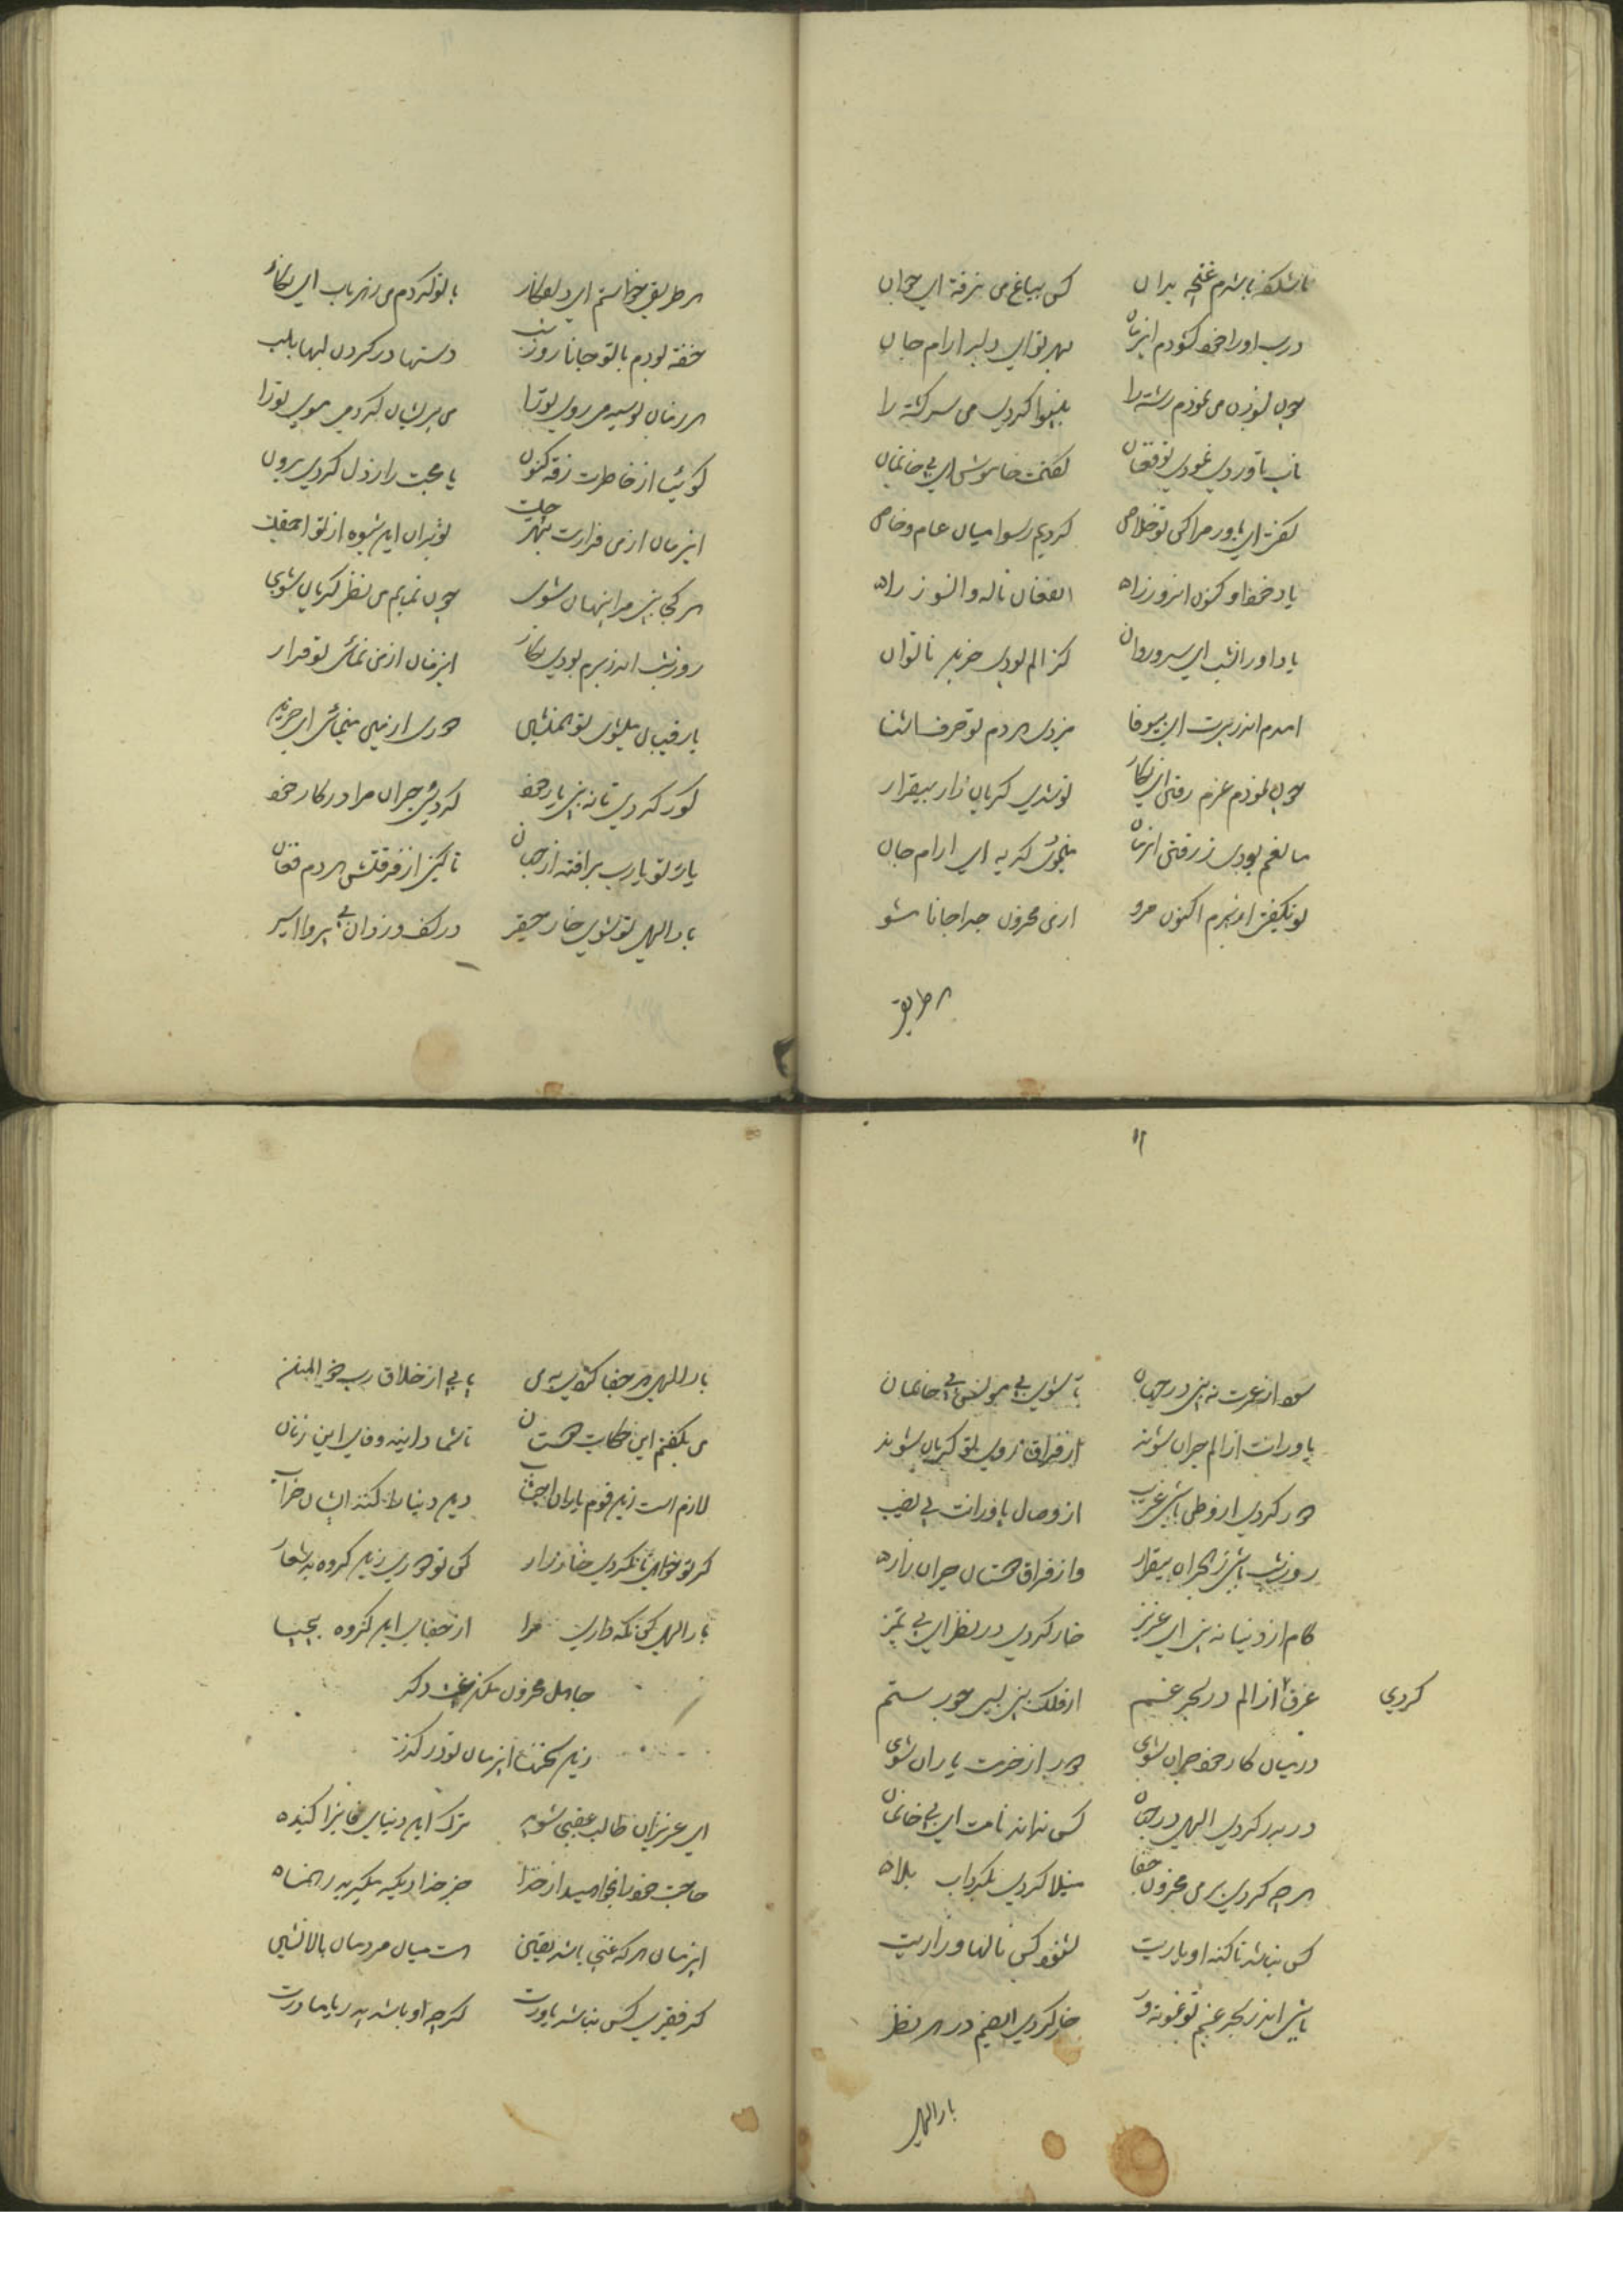 ناشکفته باشدم غنچه بدان کس بباغ من نرفته ای جوان
درب اورا خود کشودم اینزمان بهر تو ای دلبر ارام جان
چون بسوزن می نمودم رشته را بینوا کردی من سرکشته را
تاب ناوردی نمودی تو فغان گفتمت خاموش ای بی خانمان
گفتی ای یاور مرا کن تو خلاص کردیم رسوا میان عام و خاص
یاد خود اور کنون انروز راه افغان ناله و انسوز راه
یاد اور انشب ای سرو روان کز الم بودی حزین ناتوان
امدم اندر برت ای بیوفا میزدی هر دم تو حرف اشنا
چون نمودم عزم رفتن ای نکار تو شدی کریان زار بیقرار
مانعم بودی ز رفتن انزمان میموی کریه ای ارام جان
تو نکفتی از برم اکنون مرو از من محزون جدا جانا مشو
هر طریق
هر طریق خواستم ای دلفکار با تو کردم من زهر باب ای نکار
خفته بودم با تو جانا روز شب دستها در کردن لبها بلب
هر زمان بوسیدمی روی تو را می پریشان کردمی موی تو را
کوئیا از خاطرت رفته کنون یا محبت را ز دل کردی برون
اینزمان از من فرارت بهر چیست
هر کجا بینی مرا پنهان شوی چون نمایم من نظر کریان شوی
روز شب اندر برم بودی نکار اینزمان از من نمائی تو فرار
با رقیبان میشوی تو همنشین دوری از من مینمائی ای حزین
کور کردی تا نه بینی یار خود کردیی حیران مرا در کار خود
یار تو یارب برافتد از جهان تا کنی از فرقتش هر دم فغان
بار الهی تو شوی خار حقیر در کف دزدان بی پروا اسیر
۱۲
سود از عمرت نه بینی در جهان تا شوی بی مونس بی خانمان
یاورانت از الم حیران شوند از فراق روی تو کریان شوند
دور کردی از وطن باشی غریب از وصال یاورانت بی نصیب
روز شب باشی ز هجران بیقرار وز فراق دوستان حیران زاره
کام از دنیا نه بینی ای عزیز خار کردی در نظر ای بی تمیز
غرق از الم در بحر غم از فلک بینی بسی جور ستم
کردی
در میان کار خود حیران شوی دور از خدمت یاران شوی
در بدر کردی الهی در جهان کس نداند نامت ای بی خانمان
هر چه کردی بر من محزون جفا مبتلا کردی بکرداب بلاه
کس نباشد تا کند او یاریت نشنود کس نالها و زاریت
باشی اندر بحر غم تو غوطه ور خار کردی ای صنم در هر نظر
بار الهی
بار الهی هر جفا کردی به من یابی از خلاق رب ذو المنن
من بکفتم این حکایت دوستان تا شما دانید وفای این زنان
لازم است زین قوم یاران اجتناب دین دنیا را کنند ایشان خراب
کر تو خواهی تا نکردی خار زار کن تو دوری زین کروه بد شعار
بار الهی کن نکه داری مرا از جفای این کروه بیحیا
جاهل محزون مکن غیبت دکر
زین سخنها اینزمان تو در کذر
ای عزیزان طالب عقبی شوید ترک این دنیای فانی را کنیده
حاجت خود را بخواهید از خدا جز خدا دیکر مکیرید رهنماه
اینزمان هر که غنی باشد یقین هست میان مردمان بالانشین
کر فقیری کس نباشد یاورت کر چه او باشد پدر یا مادرت